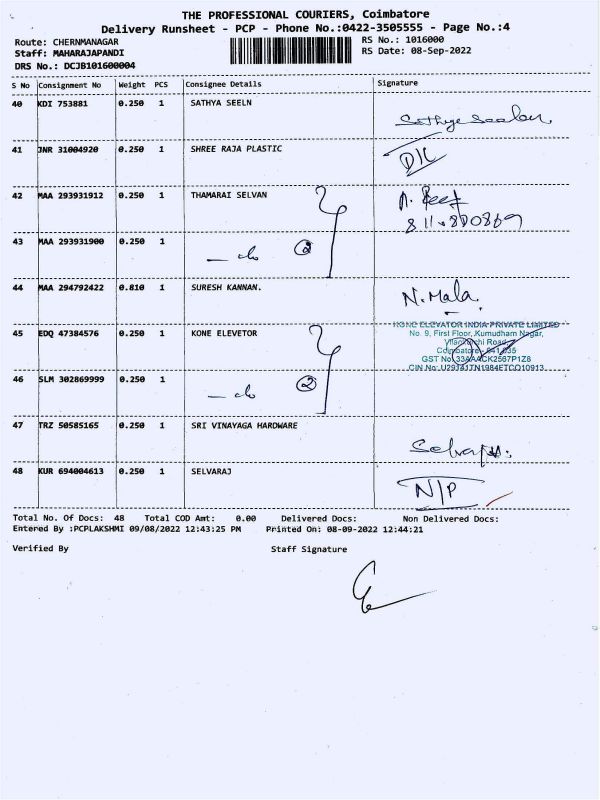 THE PROFESSIONAL COURIERS, Coimbatore
Delivery Runsheet - PCP - Phone No.:0422-3505555 - Page No.:4
Route: CHERNMANAGAR RS No.: 1016000
Staff: MAHARAJAPANDI RS Date: 08-Sep-2022
DRS No.: DCJB101600004
S No Consignment No Weight PCS Consignee Details Signature
40 KDI 753881 0.250 1 SATHYA SEELN Sathya Seelan
41 JNR 31004920 0.250 1 SHREE RAJA PLASTIC
42 MAA 293931912 0.250 1 THAMARAI SELVAN
43 MAA 293931900 0.250 1 - do 2
44 MAA 294792422 0.810 1 SURESH KANNAN. N. Mala.
45 EDQ 47384576 0.250 1 KONE ELEVETOR
KONE ELEVATOR INDIA PRIVATE LIMITED
No. 9, First Floor, Kumudham Nagar,
Vilankurichi Road,
Coimbatore - 641 035
CIN No: U29141TN1984ETC010913
46 SLM 302869999 0.250 1 - do 2
47 TRZ 50585165 0.250 1 SRI VINAYAGA HARDWARE
48 KUR 694004613 0.250 1 SELVARAJ N/P
Total No. Of Docs: 48 Total COD Amt: 0.00 Delivered Docs: Non Delivered Docs:
Entered By :PCPLAKSHMI 09/08/2022 12:43:25 PM Printed On: 08-09-2022 12:44:21
Verified By Staff Signature